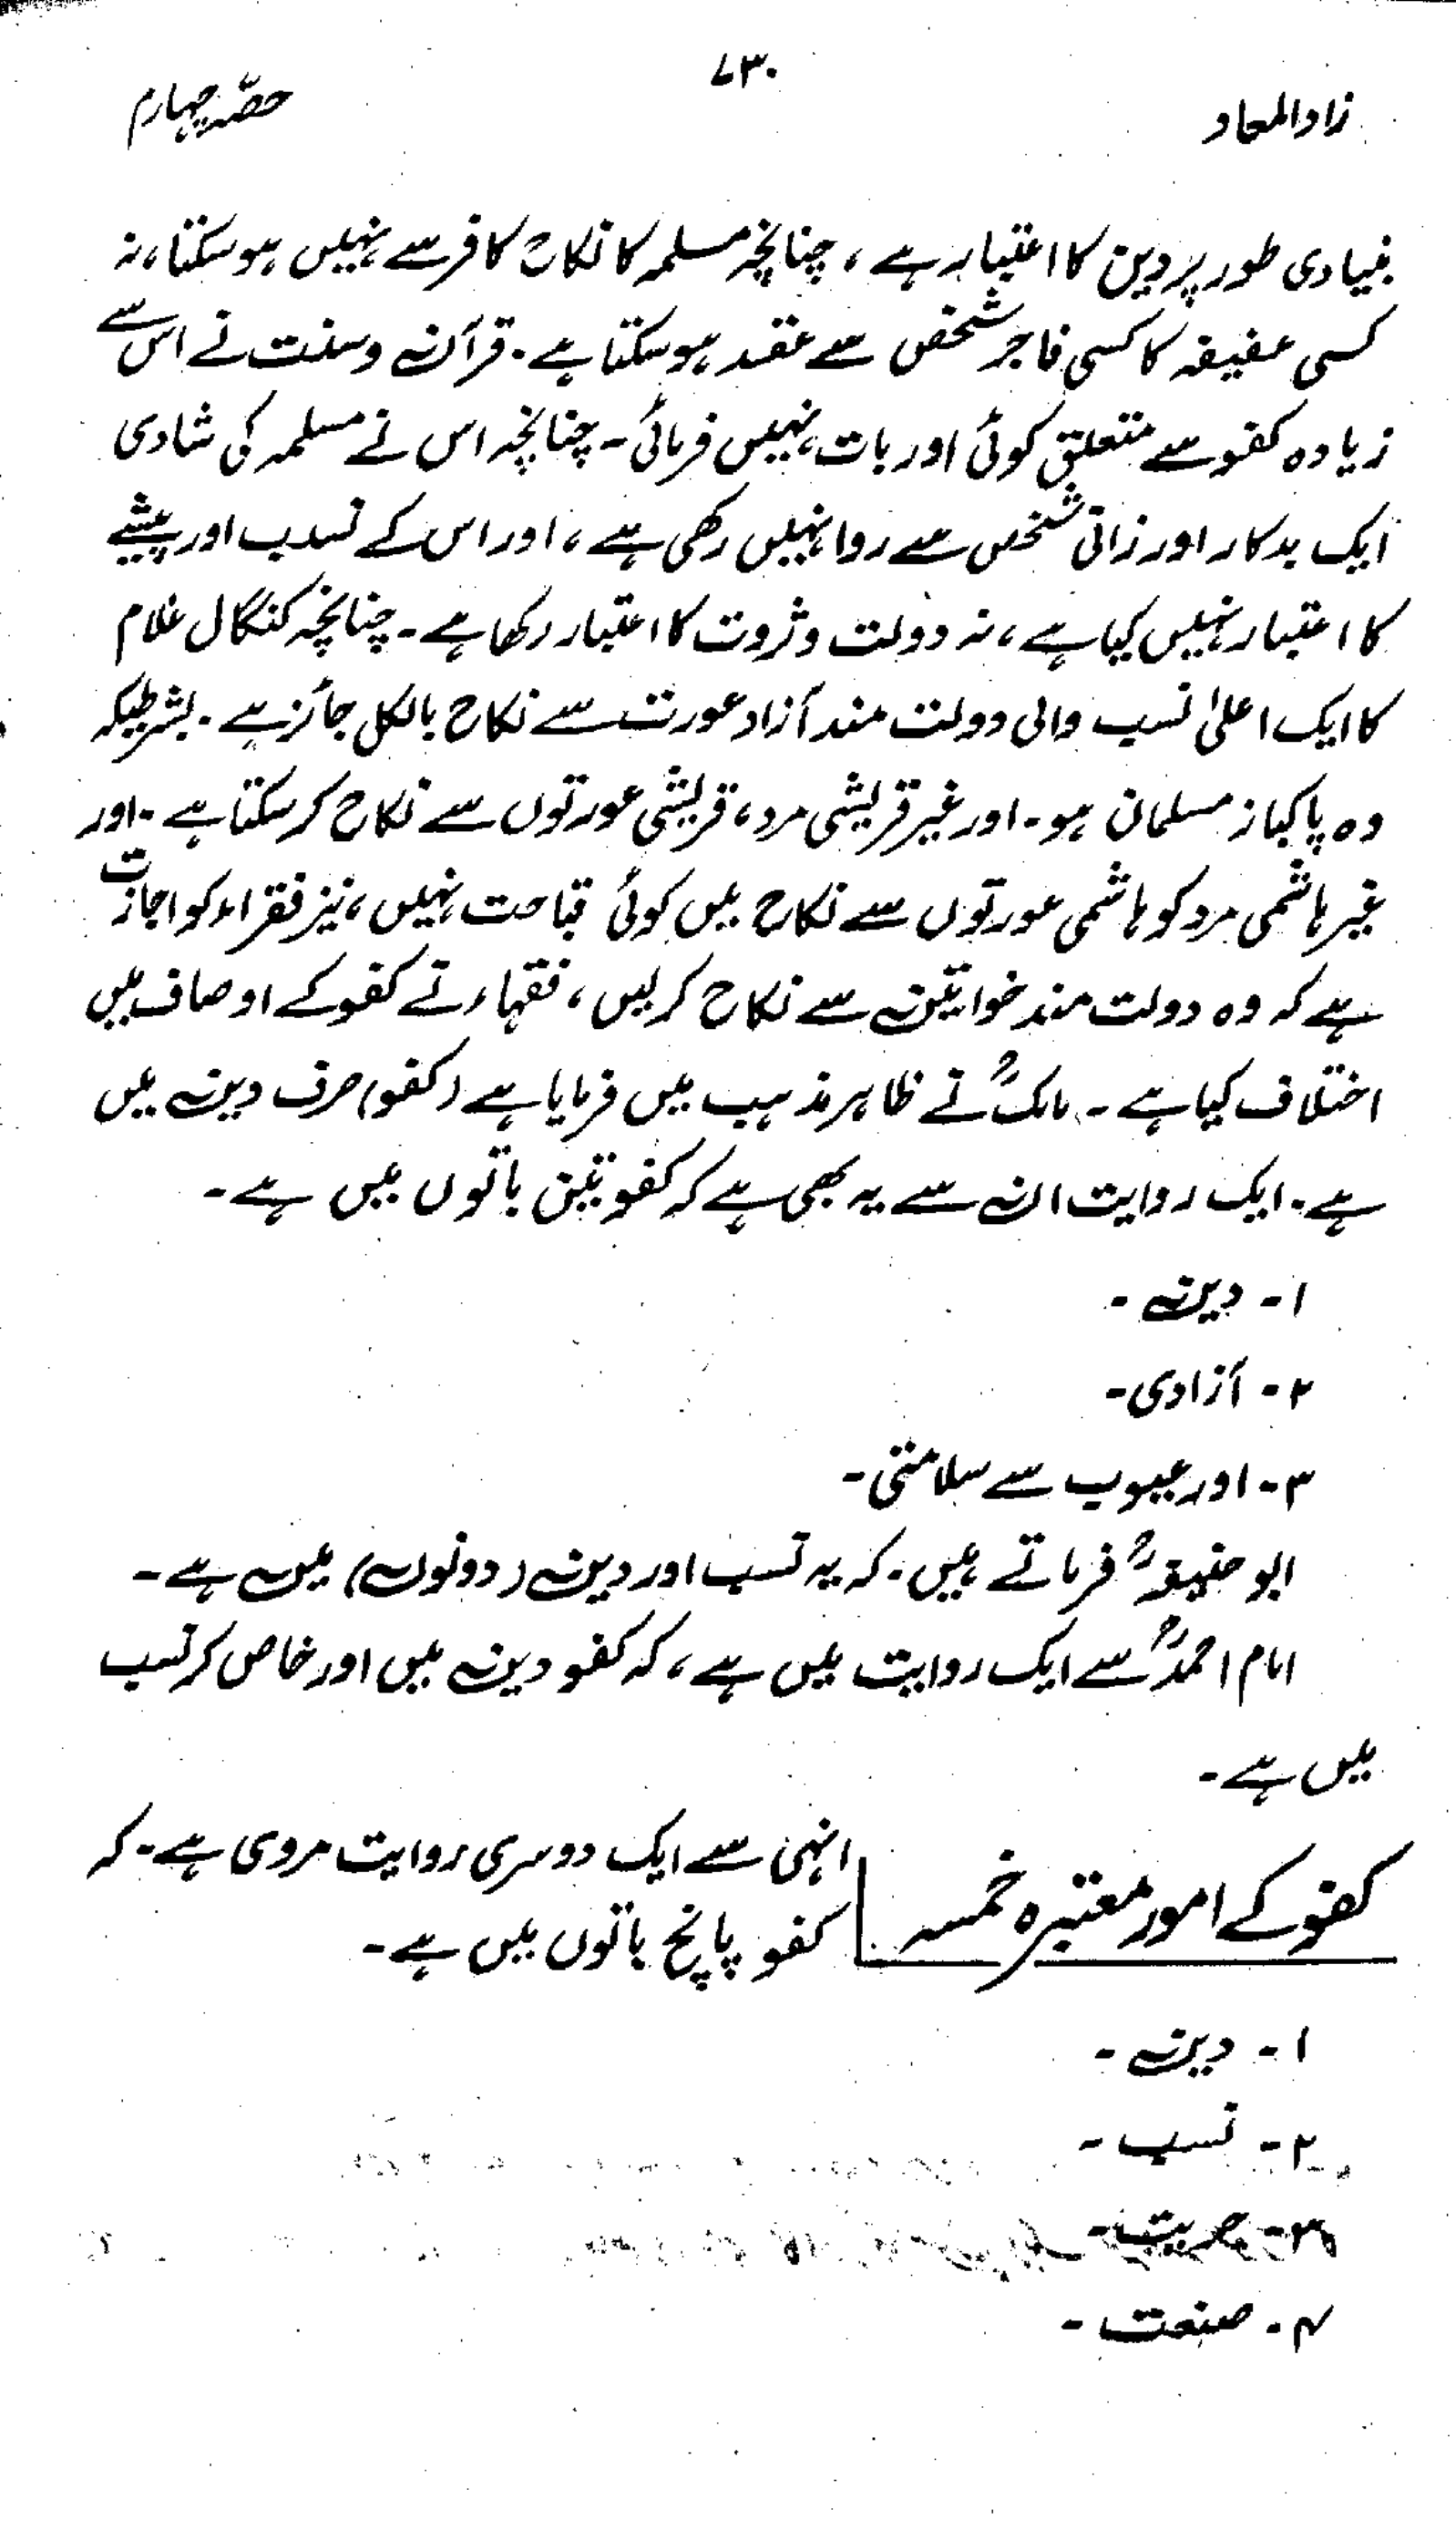 ۷۳۰
زادالمعاد
حصّہ چہارم
بنیادی طور پر دین کا اعتبار ہے ، چنانچہ مسلمہ کا نکاح کافر سے نہیں ہو سکتا ، نہ
کسی عفیفہ کا کسی فاجر شخص سے عقد ہو سکتا ہے ۔ قرآن و سنت نے اس سے
زیادہ کفو سے متعلق کوئی اور بات نہیں فرمائی ۔ چنانچہ اس نے مسلمہ کی شادی
ایک بدکار اور زانی شخص سے روا نہیں رکھی ہے ، اور اس کے نسب اور پیشے
کا اعتبار نہیں کیا ہے ، نہ دولت و ثروت کا اعتبار رکھا ہے ۔ چنانچہ کنگال غلام
کا ایک اعلیٰ نسب والی دولت مند آزاد عورت سے نکاح بالکل جائز ہے ۔ بشرطیکہ
وہ پاکباز مسلمان ہو ۔ اور غیر قریشی مرد ، قریشی عورتوں سے نکاح کر سکتا ہے ۔ اور
غیر ہاشمی مرد کو ہاشمی عورتوں سے نکاح میں کوئی قباحت نہیں ، نیز فقراء کو اجازت
ہے کہ وہ دولت مند خواتین سے نکاح کر لیں ، فقہاء نے کفو کے اوصاف میں
اختلاف کیا ہے ۔ مالکؒ نے ظاہر مذہب میں فرمایا ہے (کفو) صرف دین میں
ہے ۔ ایک روایت ان سے یہ بھی ہے کہ کفو تین باتوں میں ہے ۔
۱ ۔ دین ۔
۲ ۔ آزادی ۔
۳ ۔ اور عیوب سے سلامتی ۔
ابو حنیفہؒ فرماتے ہیں ۔ کہ یہ نسب اور دین (دونوں) میں ہے ۔
امام احمدؒ سے ایک روایت میں ہے ، کہ کفو دین میں اور خاص کر نسب
میں ہے ۔
کفو کے امور معتبرہ خمسہ
انہی سے ایک دوسری روایت مروی ہے ۔ کہ
کفو پانچ باتوں میں ہے ۔
۱ ۔ دین ۔
۲ ۔ نسب ۔
۳ ۔ حریت ۔
۴ ۔ صنعت ۔